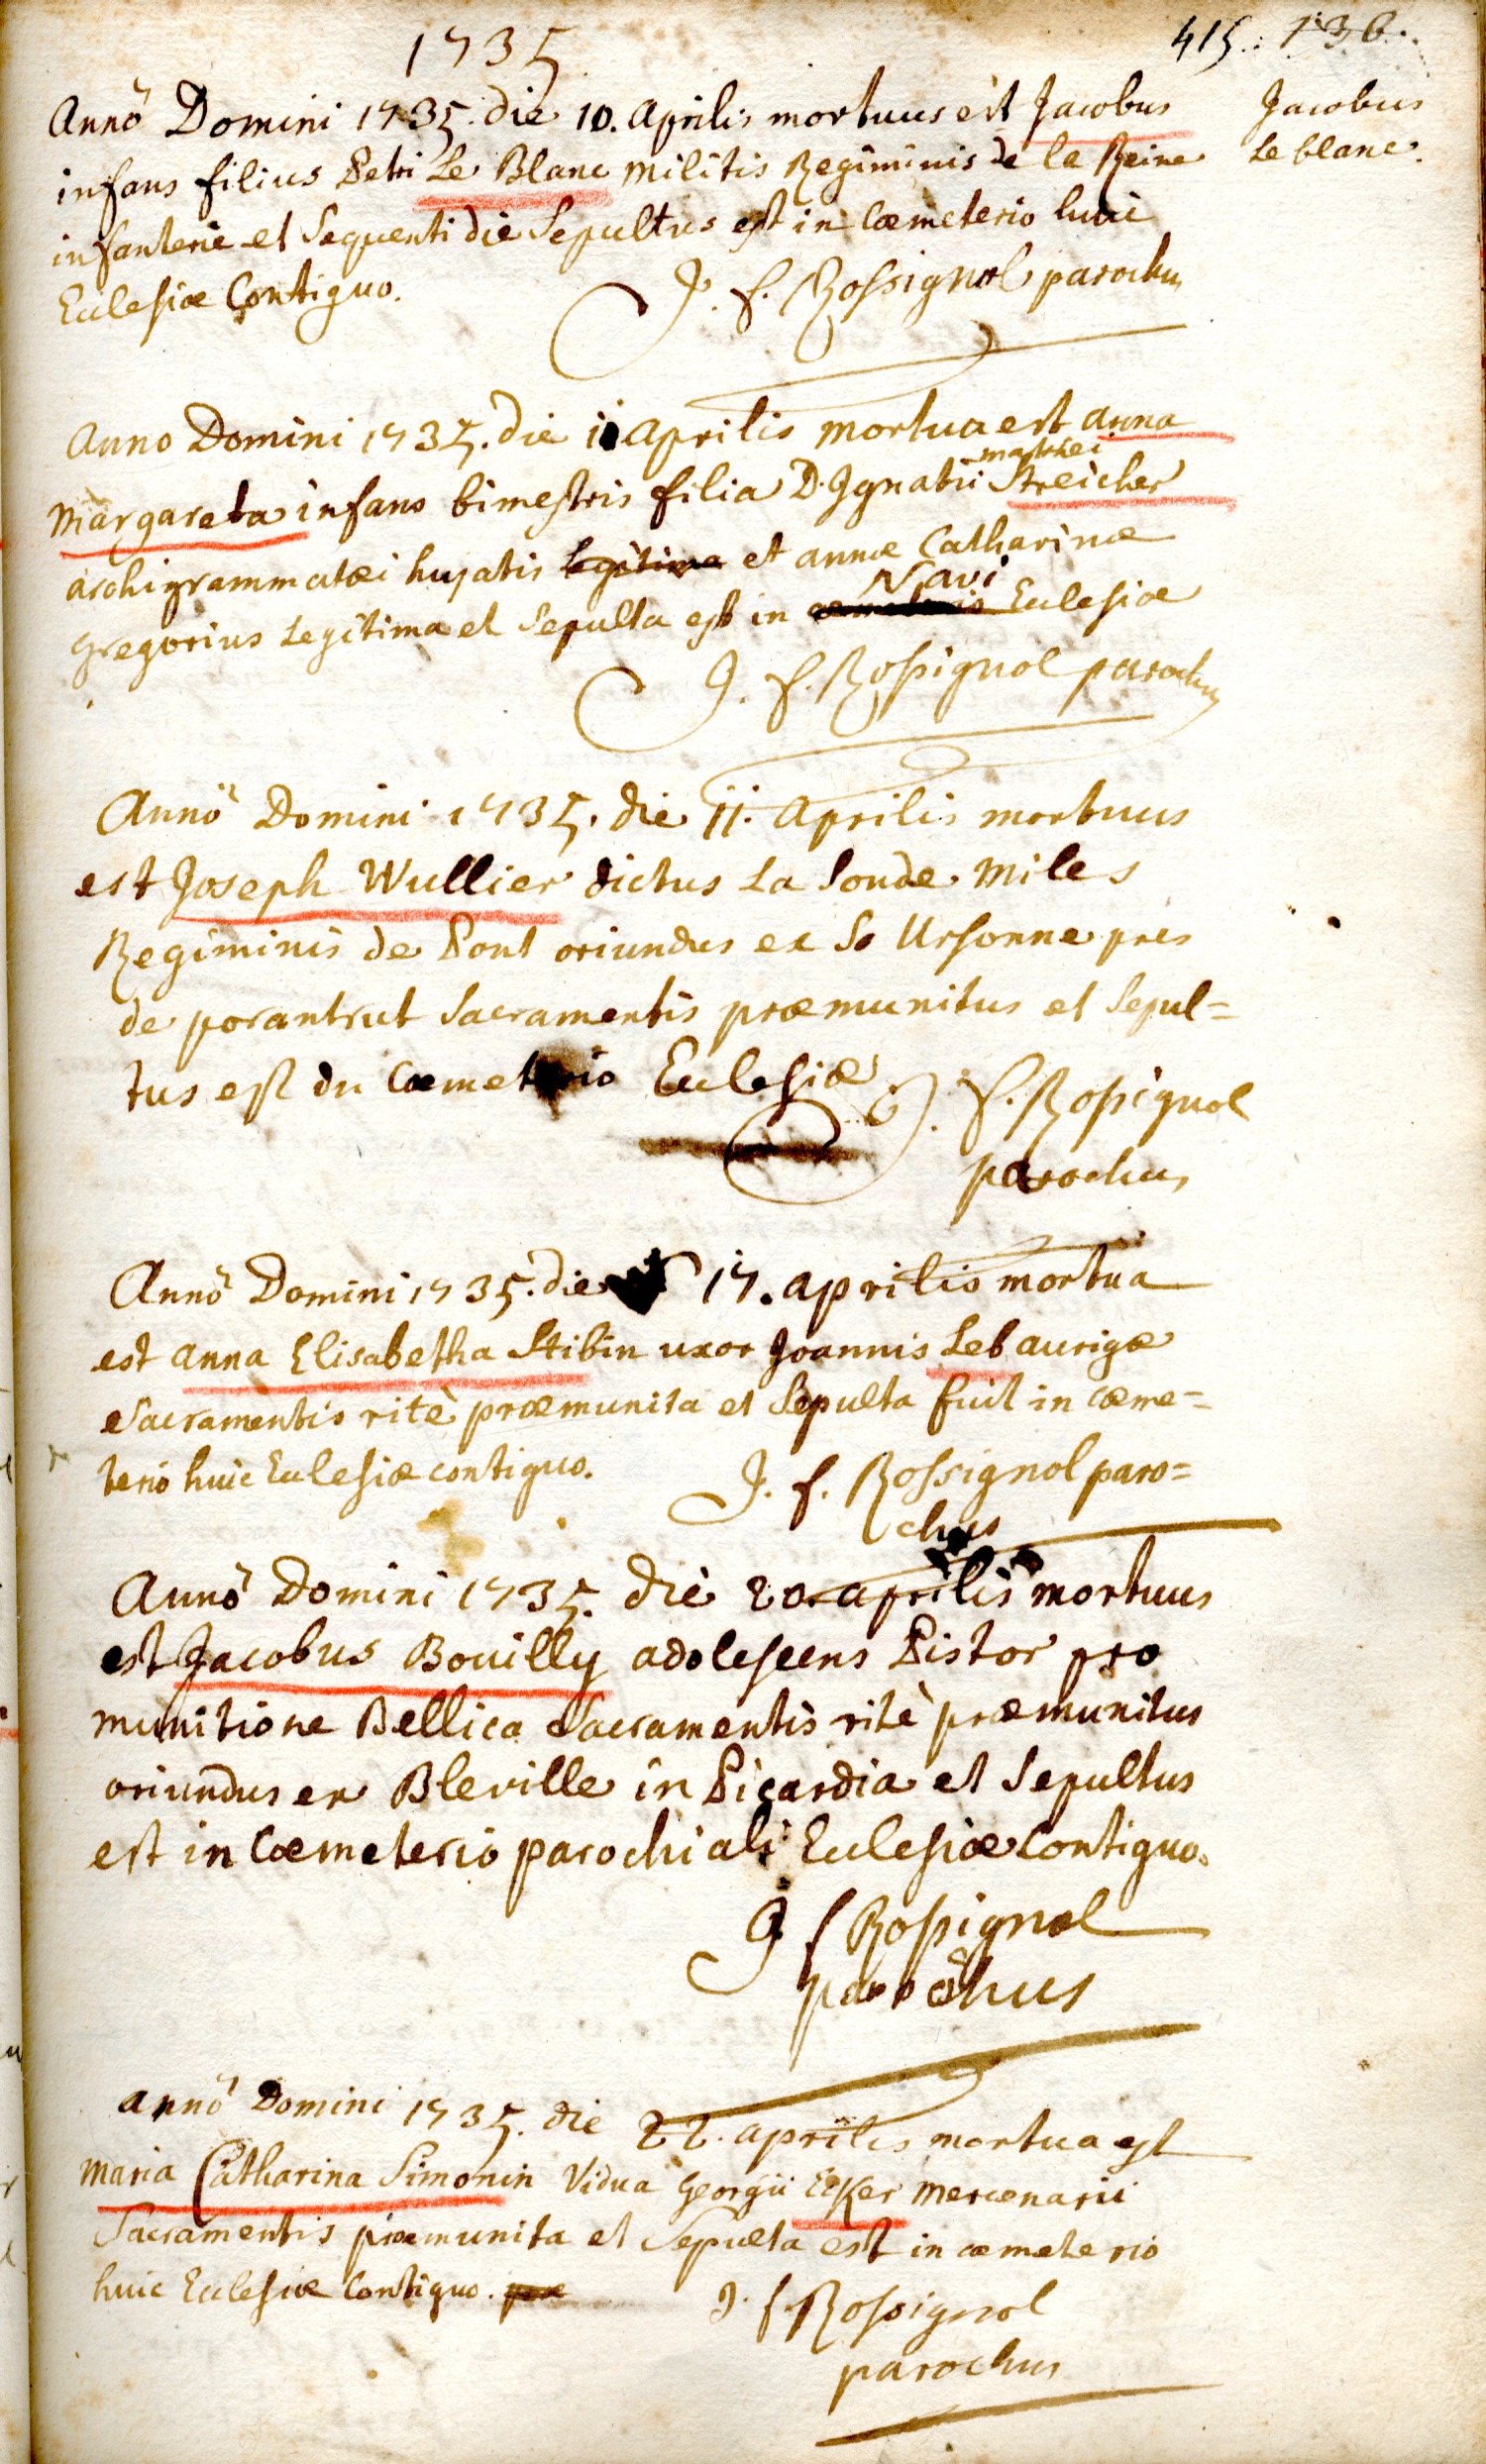 1735
415. 136.
Annô Domini 1735. die 10. Aprilis mortuus est Jacobus
Jacobus
Le blanc.
infans filius Petri Le Blanc militis Regiminis de la Reine
infanterie et sequenti die Sepultus est in Cœmeterio huic
Eclesiæ Contiguo. J. f. Rossignol parochus
Anno Domini 1735. die 11 Aprilis mortua est Anna
matthei
Margareta infans bimestris filia D. Ignatii Streicher
archigrammatæi hujatis legitima et annæ Catharinæ
Navi
gregorius Legitima et Sepulta est in cœmeterio Eclesiæ
J. f. Rossignol parochus
Annô Domini 1735. die 11. Aprilis mortuus
est Joseph Wullier dictus La Sonde Miles
Regiminis de Pont oriundus ex St Ursonne près
de porantrut Sacramentis præmunitus et Sepul=
tus est in Cœmeterio Eclesiæ J. f. Rossignol
parochus
Annô Domini 1735. die 17. aprilis mortua
est anna Elisabetha Stibin uxor Joannis Leb aurigæ
Sacramentis ritè præmunita et Sepulta fuit in cœme=
terio huic Eclesiæ contiguo. J. f. Rossignol paro=
chus
Annô Domini 1735. die 20. aprilis mortuus
est Jacobus Bouilly adolescens Pistor pro
munitione Bellica Sacramentis ritè præmunitus
oriundus ex Bleville in Picardia et Sepultus
est in Cœmeterio parochiali Eclesiæ Contiguo.
J f Rossignol
parochus
annô Domini 1735. die 22. aprilis mortua est
Maria Catharina Simonin Vidua Georgii Ecker Mercenarii
Sacramentis præmunita et Sepulta est in cœmeterio
huic Eclesiæ Contiguo. præ
J. f. Rossignol
parochus